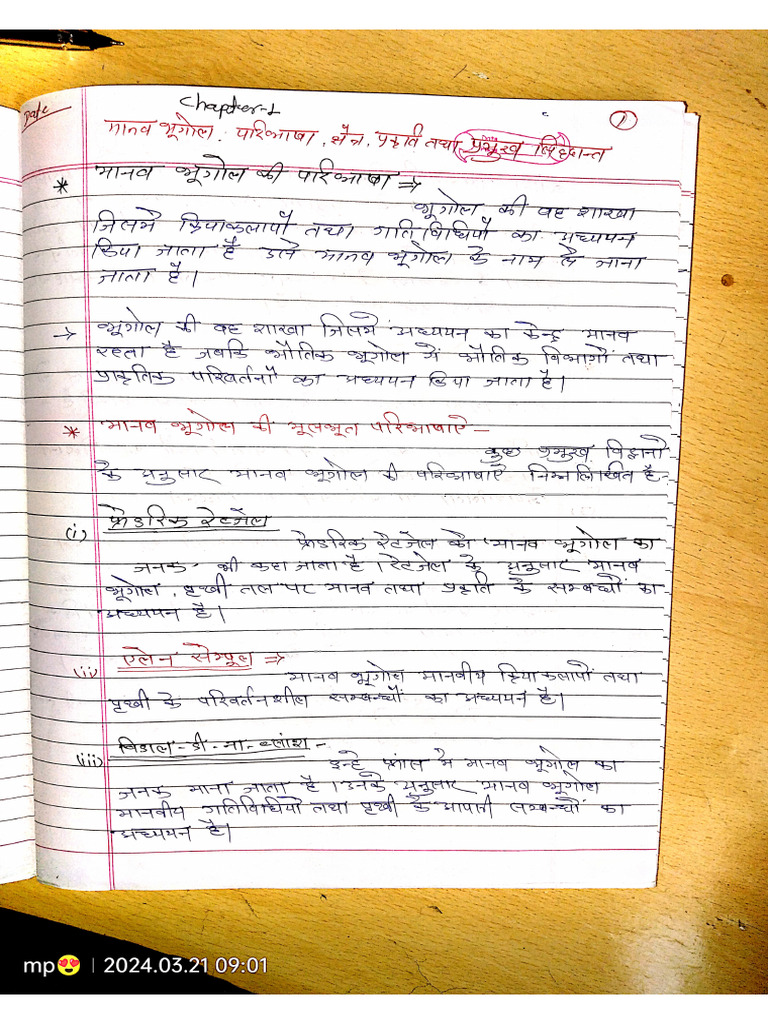 Date
Chapter-1
①
मानव भूगोल : परिभाषा, क्षेत्र, प्रकृति तथा प्रमुख सिद्धान्त
* मानव भूगोल की परिभाषा ⇒
भूगोल की वह शाखा
जिसमें क्रियाकलापों तथा गतिविधियों का अध्ययन
किया जाता है उसे मानव भूगोल के नाम से जाना
जाता है।
→ भूगोल की वह शाखा जिसमें अध्ययन का केन्द्र मानव
रहता है जबकि भौतिक भूगोल में भौतिक विभागों तथा
प्राकृतिक परिवर्तनों का अध्ययन किया जाता है।
* मानव भूगोल की मूलभूत परिभाषाऐं –
कुछ प्रमुख विद्वानों
के अनुसार मानव भूगोल की परिभाषाऐं निम्नलिखित है-
(i) फ्रेडरिक रेटजेल
फ्रेडरिक रैटजेल को 'मानव भूगोल का
जनक' भी कहा जाता है। रैटजेल के अनुसार मानव
भूगोल, पृथ्वी तल पर मानव तथा प्रकृति के सम्बन्धों का
अध्ययन है।
(ii) ऐलेन सेम्पुल ⇒
मानव भूगोल मानवीय क्रियाकलापों तथा
पृथ्वी के परिवर्तनशील सम्बन्धों का अध्ययन है।
(iii) विडाल-डी-ला-ब्लांश -
उन्हे फ्रांस में मानव भूगोल का
जनक माना जाता है। उनके अनुसार मानव भूगोल
मानवीय गतिविधियों तथा पृथ्वी के आपसी सम्बन्धों का
अध्ययन है।
mp😍 | 2024.03.21 09:01